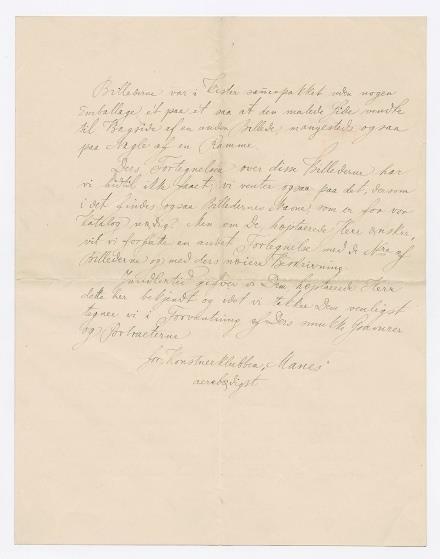 Billederne var i Kister sam̄enpakket uden nogen
Emballage et paa et saa at den malede Side vendte
til Bagside af en anden Billede, mangesteds ogsaa
paa Nagle af en Ramme.
Deres Fortegnelse over disse Billederne har
vi hidtil ikke faaet, vi venter ogsaa paa det, da som
i det findes ogsaa Billedernes Navne, som er for vor
Katalog nødig. Men om De højtærede Herr ønsker,
vil vi forfatte en anbet Fortegnelse med de Nira af
Billederne og med ders nøiere Beskrivning.
Imidlertid giver vi Dem højtærede Herr
dette her bekjendt og idet vi takke Dem venligst
tegner vi i Forventning af Ders
og Portraeterne
for Kunstnerklubben "Manes"
aerebødigst